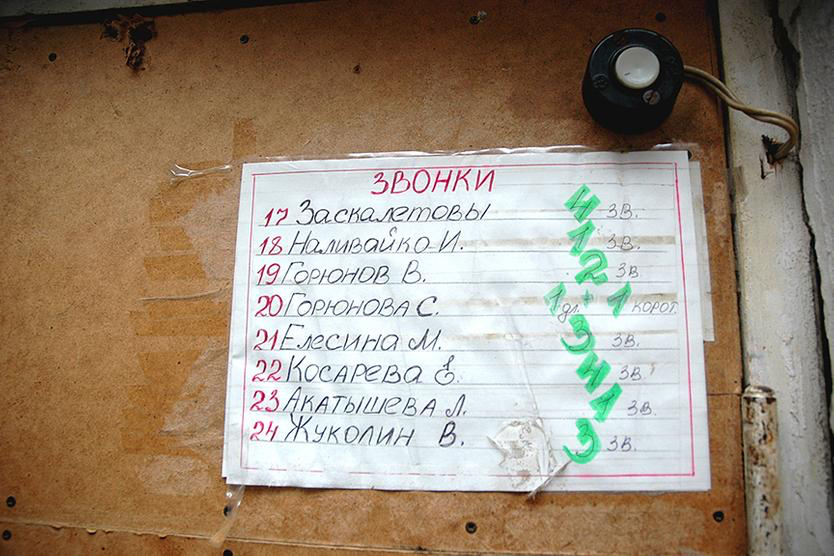 ЗВОНКИ
17 Заскалетовы 4 зв.
18 Наливайко И. 1 зв.
19 Горюнов В. 2 зв
20 Горюнова С. 1 дл. + 1 корот.
21 Елесина М. 3 зв.
22 Косарева 4 зв.
23 Акатышева Л. 1 зв.
24 Жуколин В. 3 зв.